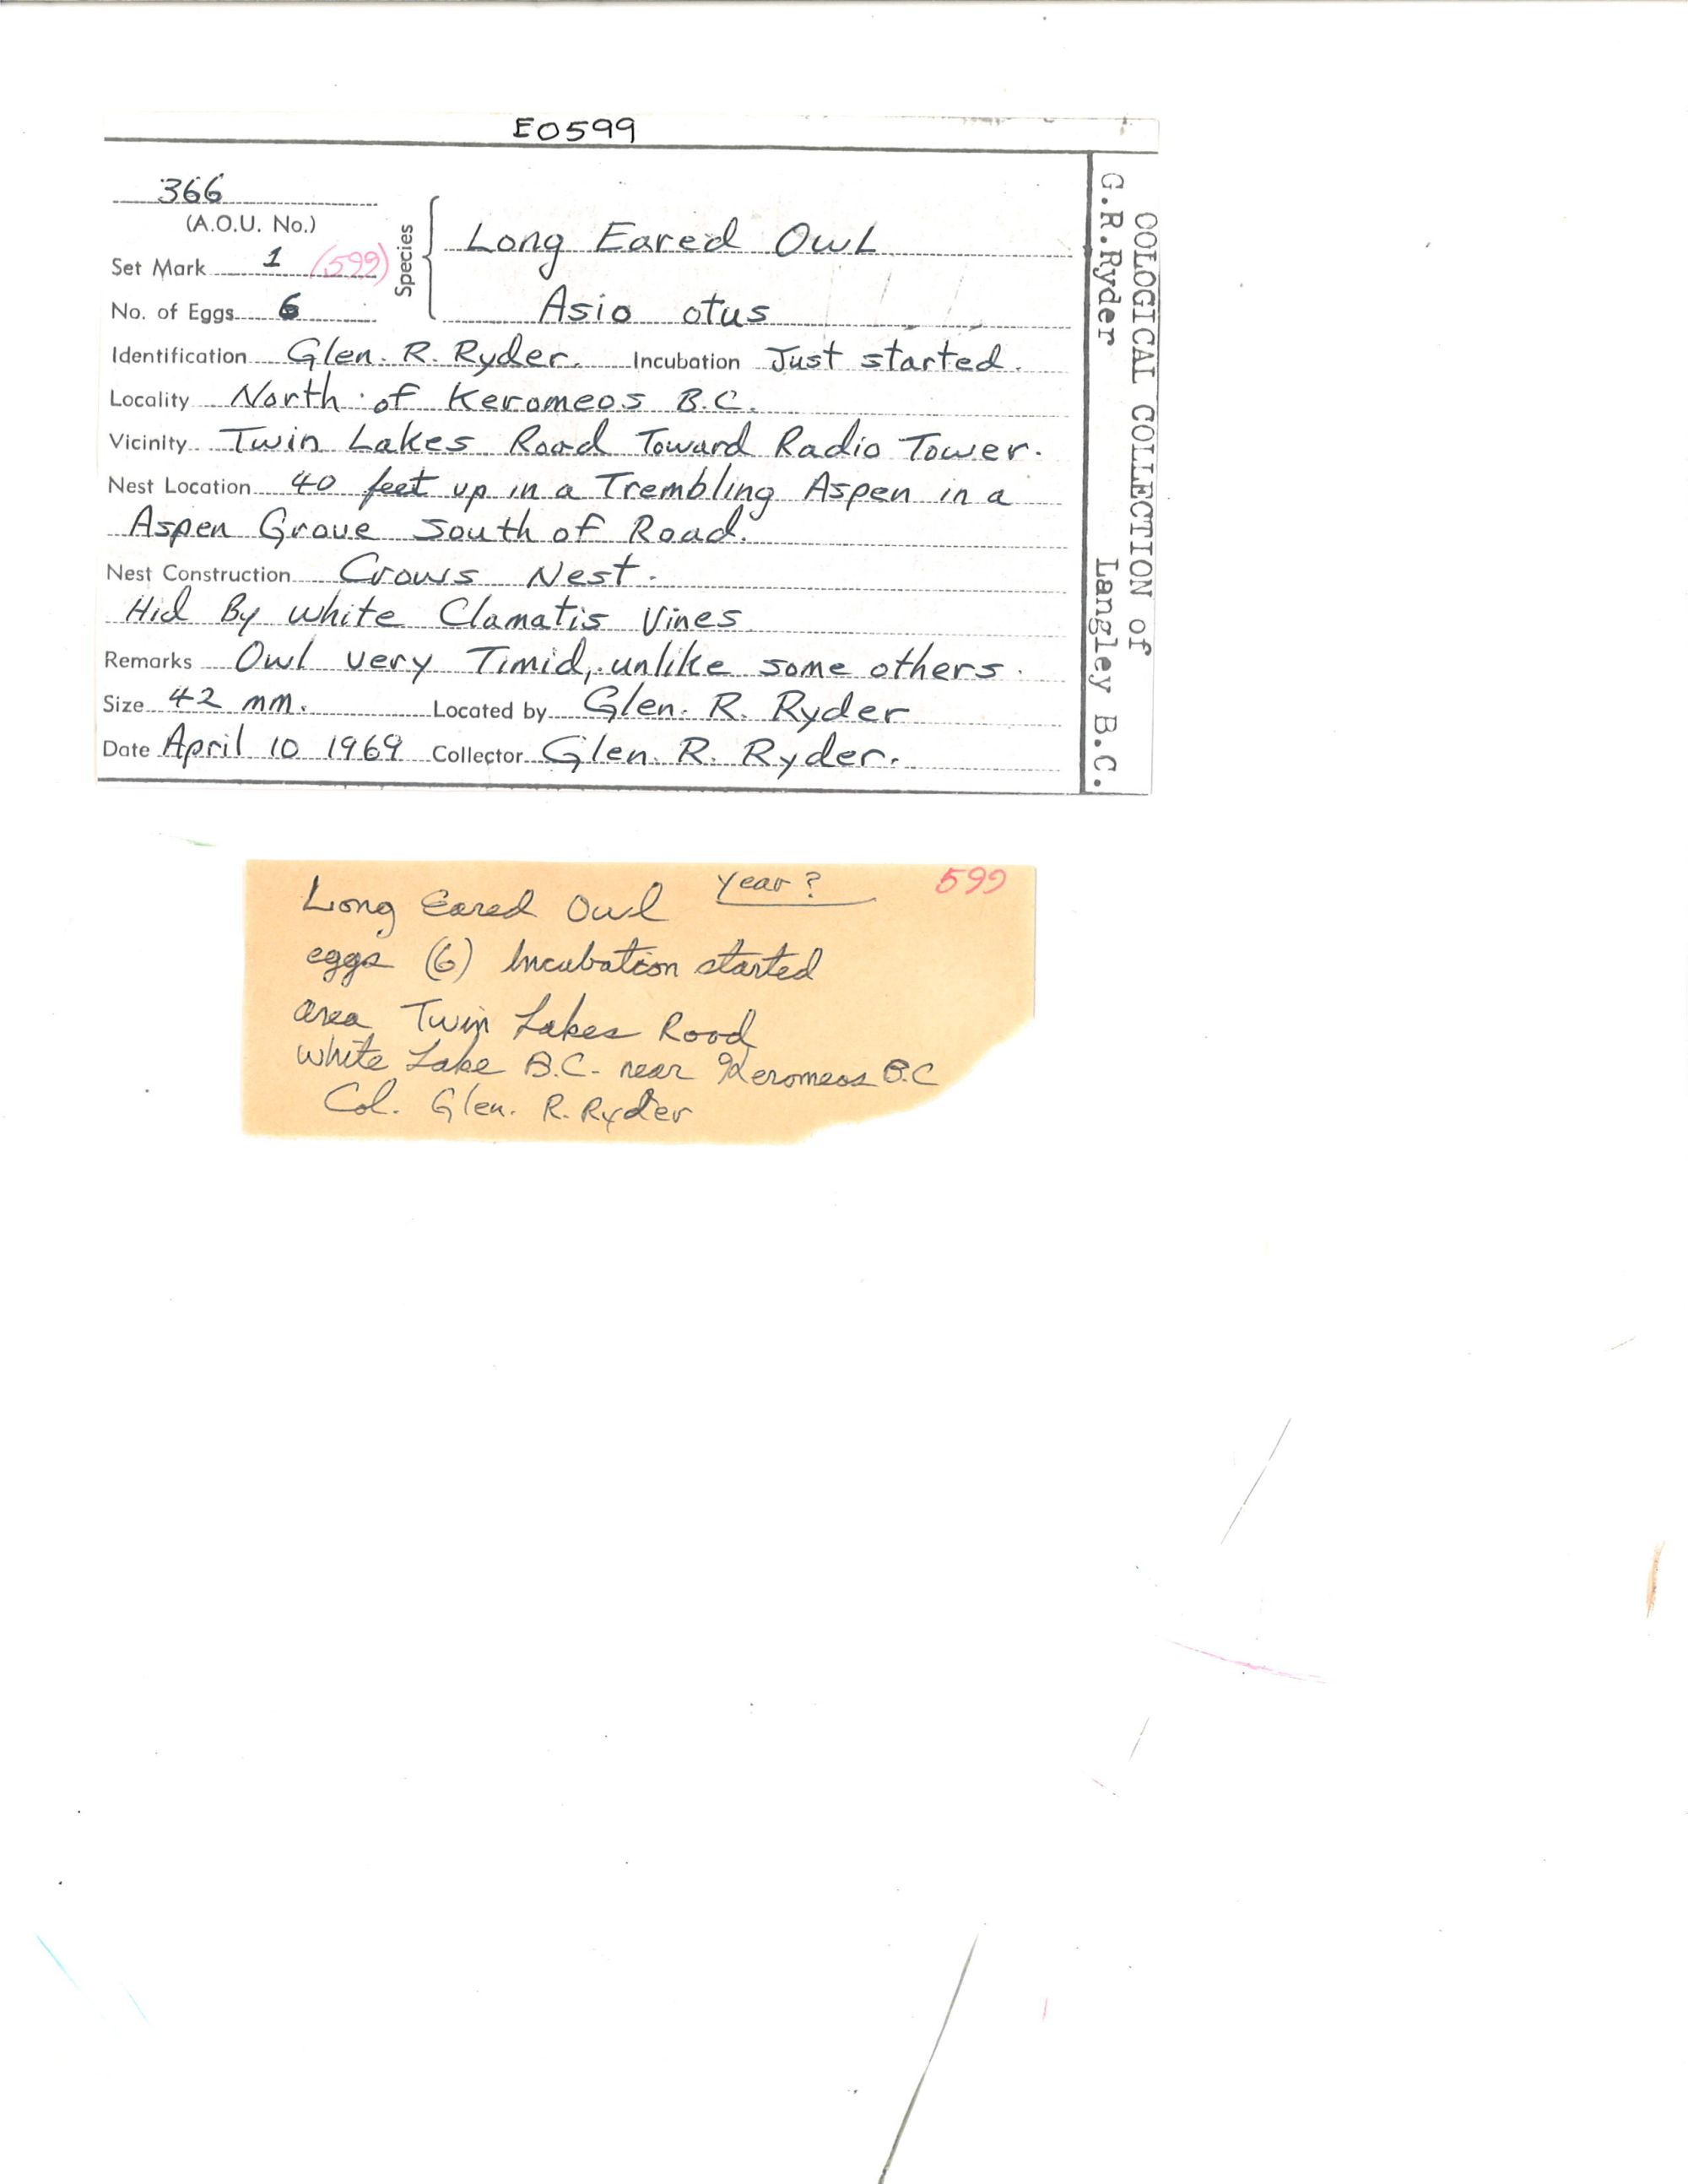 E0599
366
(A.O.U. No.)
Set Mark 1 (599)
No. of Eggs 6
Species
Long Eared Owl
Asio otus
Identification Glen. R. Ryder. Incubation Just started.
Locality North of Keromeos B.C.
Vicinity Twin Lakes Road Toward Radio Tower.
Nest Location 40 feet up in a Trembling Aspen in a
Aspen Grove South of Road.
Nest Construction Crows Nest.
Hid By White Clamatis Vines
Remarks Owl very Timid, unlike some others.
Size 42 mm. Located by Glen. R. Ryder
Date April 10 1969 Collector Glen. R. Ryder.
OOLOGICAL COLLECTION of
G.R.Ryder Langley B.C.
Long Eared Owl year? 599
eggs (6) Incubation started
area Twin Lakes Road
White Lake B.C. near Keromeos B.C
Col. Glen. R. Ryder